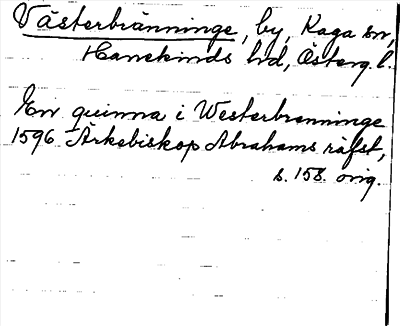 Västerbränninge, by, Kaga sn,
Hanekinds hd, Österg. l.
En quinna i Westerbrenninge
1596 Ärkebiskop Abrahams räfst,
s. 158. orig.